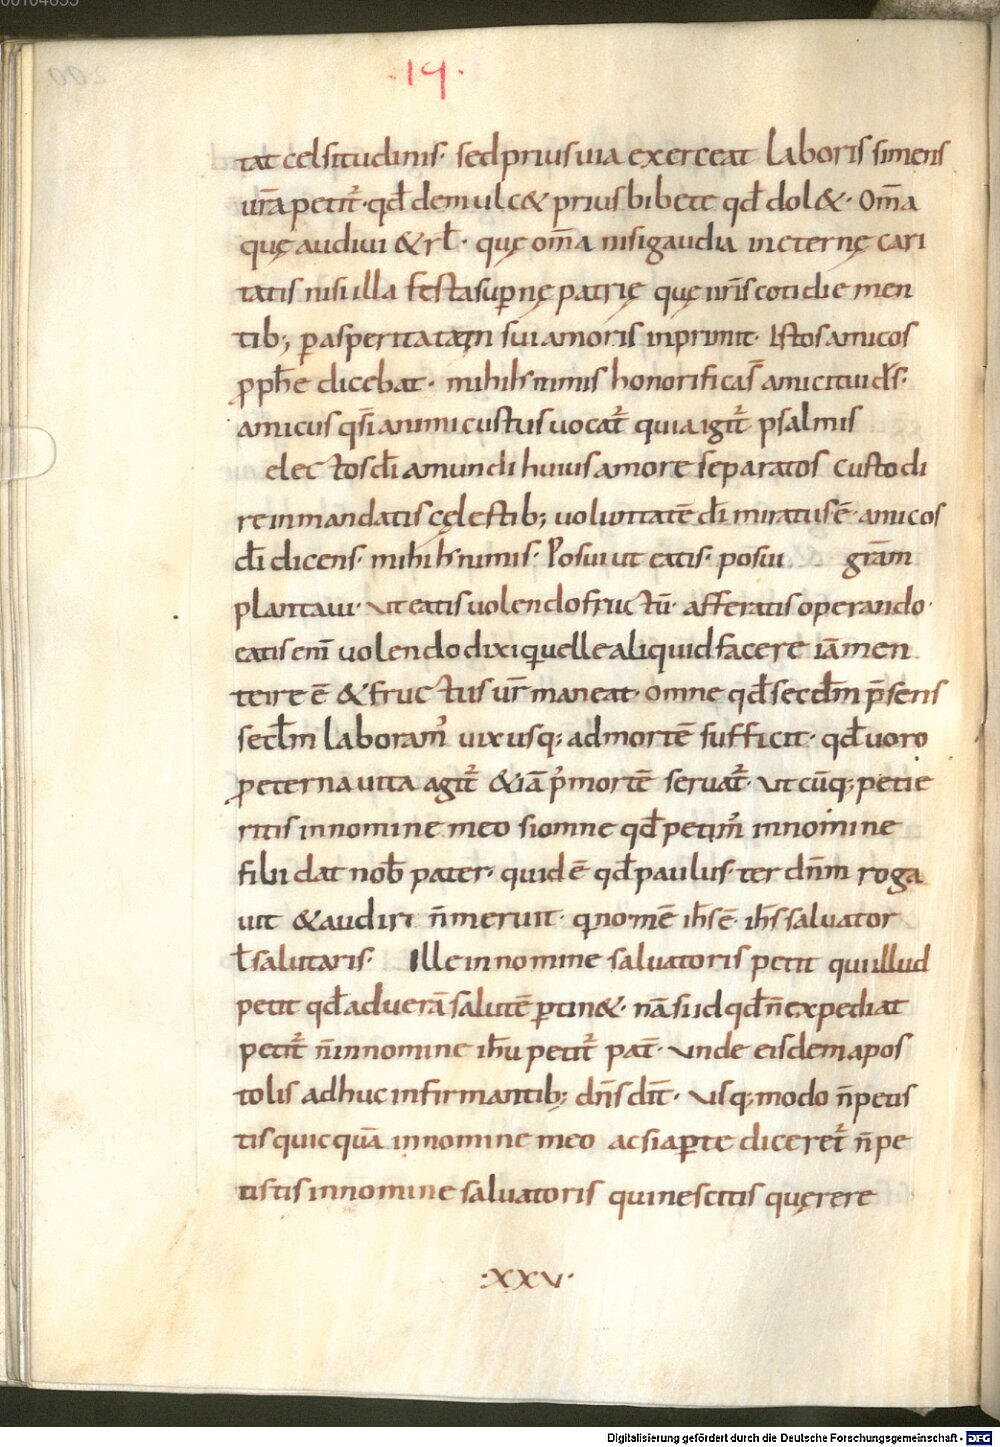 00104655
200
·19·
tat celsitudinis· sed prius uia exerceat laboris si mens
ur̄a petit᷑· qd̄ demulc& prius bibete qd̄ dol&· Om̄a
quę audiui & rł· quę om̄a nisi gaudia in eternę cari
tatis nisi illa festa sup̲nę patrię quę nr̄is cotidie men
tib; p̲ asperitatem sui amoris inprimit· Istos amicos
p̲ph̄e dicebat· mihi h̄ nimis honorificaſ̄ amici tui ds̄·
amicus qs̄i animi custus uocat᷑ quia igit᷑ psalmis
electos dī a mundi huius amore separatos custodi
re in mandatis cęlestib; uoluntatē dī miratus ē· amicos
dī dicens· mihi h̄ nimis· Posui ut eatis· posui gr̄am
plantaui· ut eatis uolendo fructū· afferatis operando·
eatis eni̅ uolendo dixi quelle aliquid facere iā men
te ire ē & fructus ur̄ maneat· omne qd̄ secdm̄ p̄sens
secłm laboram᷑ uix usq; ad mortē sufficit· qd̄ uoro
p̲ eterna uita agit᷑ & iā p᷑ mortē seruat᷑· ut cūq; petie
ritis in nomine meo si omne qd̄ petim᷑ in nomine
filii dat nob̄ pater· quid ē qd̄ paulus· ter dn̄m roga
uit & audiri n̄ meruit· q nomē ih̄s ē· ih̄s saluator
ł salutaris· Ille in nomine saluatoris petit qui illud
petit qd̄ ad uerā salutē p̲tin&· nā si id qd̄ n̄ expediat
petit᷑ n̄ in nomine ih̄u petit᷑ pat̄· unde eisdem apos
tolis adhuc infirmantib; dn̄s dic̄t· usq; modo n̄ petis
tis quicquā in nomine meo ac si ap̲te diceret᷑ n̄ pe
tistis in nomine saluatoris qui nescitis quęrere
:XXV·
Digitalisierung gefördert durch die Deutsche Forschungsgemeinschaft - DFG